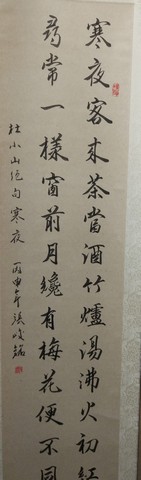 寒夜客来茶當酒竹爐湯沸火初紅
尋常一樣窗前月纔有梅花便不同
杜小山绝句寒夜 丙申年張